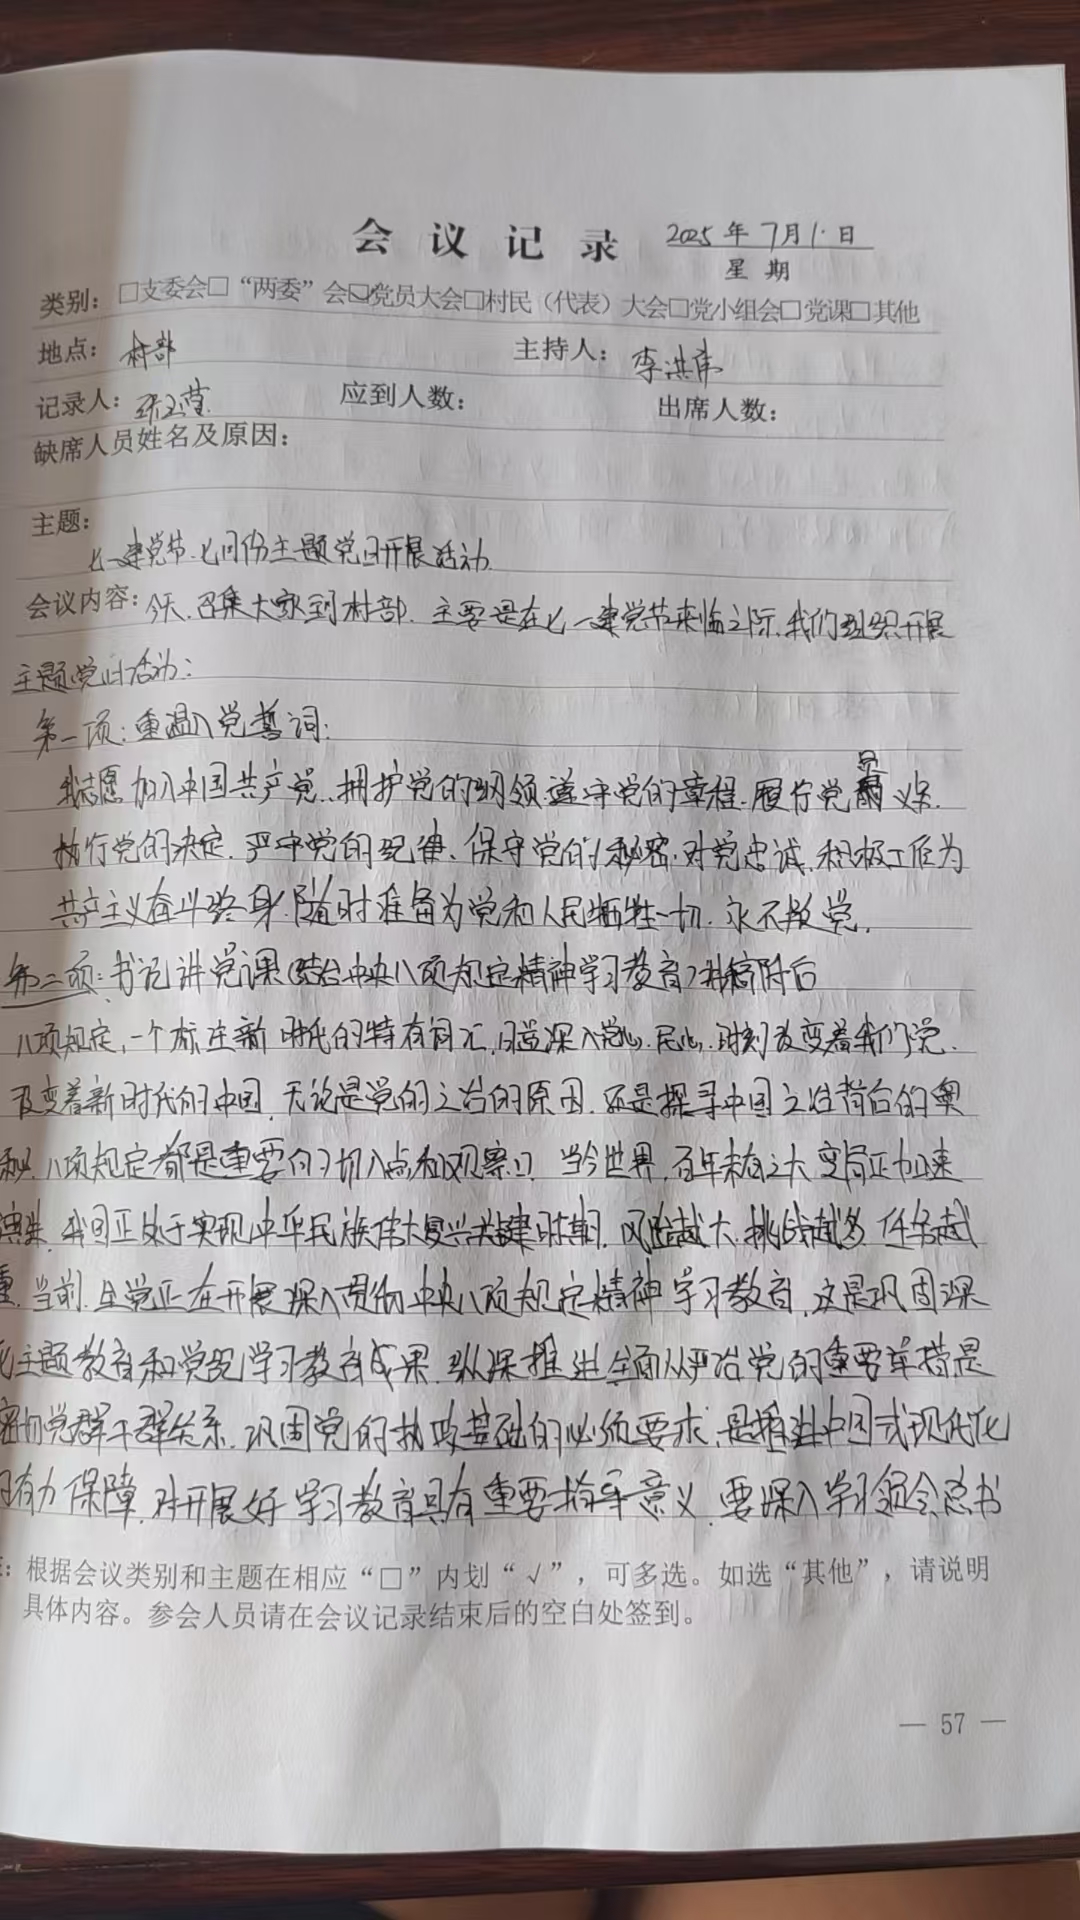 会议记录 2025年7月1日
星期
类别：□支委会□“两委”会☑党员大会□村民（代表）大会□党小组会□党课□其他
地点：村部 主持人：李洪伟
记录人： 应到人数： 出席人数：
缺席人员姓名及原因：
主题：
七一建党节.七月份主题党日开展活动.
会议内容：今天.召集大家到村部.主要是在七一建党节来临之际.我们组织开展
主题党日活动：
第一项：重温入党誓词：
我志愿加入中国共产党.拥护党的纲领.遵守党的章程.履行党员义务.
执行党的决定.严守党的纪律.保守党的秘密.对党忠诚.积极工作为
共产主义奋斗终身.随时准备为党和人民牺牲一切.永不叛党.
第二项：书记讲党课(结合中央八项规定精神学习教育)讲稿附后
八项规定，一个标注新时代的特有词汇，日益深入党心.民心.时刻改变着我们党.
改变着新时代的中国.无论是党的之治的原因.还是探寻中国之治背后的奥
秘.八项规定都是重要的切入点和观察口.当今世界.百年未有之大变局正加速
演进.我国正处于实现中华民族伟大复兴关键时期.风险越大.挑战越多.任务越
重.当前.全党正在开展深入贯彻中央八项规定精神学习教育.这是巩固深
化主题教育和党纪学习教育成果.纵深推进全面从严治党的重要举措是
密切党群干群关系.巩固党的执政基础的必须要求.是推进中国式现代化
有力保障.对开展好学习教育具有重要指导意义.要深入学习领会总书
：根据会议类别和主题在相应“□”内划“√”，可多选。如选“其他”，请说明
具体内容。参会人员请在会议记录结束后的空白处签到。
— 57 —